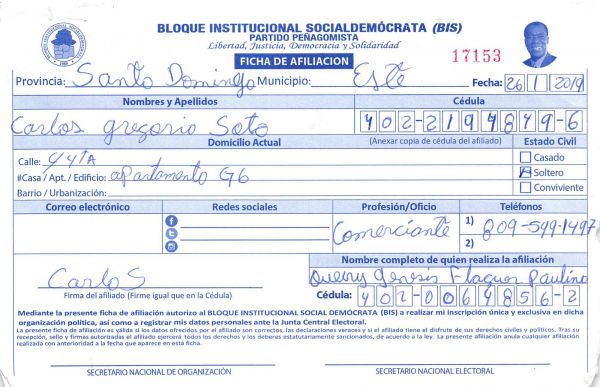 BLOQUE INSTITUCIONAL SOCIALDEMÓCRATA (BIS)
PARTIDO PEÑAGOMISTA
Libertad, Justicia, Democracia y Solidaridad
FICHA DE AFILIACION
17153
Provincia: Santo Domingo Municipio: Este Fecha: 26/1/2019
Nombres y Apellidos Cédula
Carlos gregorio Soto 402-2194849-6
Domicilio Actual (Anexar copia de cédula del afiliado) Estado Civil
Calle: 44TA Casado
#Casa / Apt. / Edificio: apartamento G6 Soltero
Barrio / Urbanización: Conviviente
Correo electrónico Redes sociales Profesión/Oficio Teléfonos
Comerciante 1) 809-599-1497
2)
Nombre completo de quien realiza la afiliación
Carlos Genesis Flaquer Paulino
Firma del afiliado (Firme igual que en la Cédula) Cédula: 402-0064856-2
Mediante la presente ficha de afiliación autorizo al BLOQUE INSTITUCIONAL SOCIAL DEMÓCRATA (BIS) a realizar mi inscripción única y exclusiva en dicha
organización política, así como a registrar mis datos personales ante la Junta Central Electoral.
La presente ficha de afiliación es válida si los datos ofrecidos por el afiliado son correctos, las declaraciones veraces y si el afiliado tiene el disfrute de sus derechos civiles y políticos. Tras su
recepción, sello y firmas autorizadas el afiliado ejercerá todos los derechos y los deberes estatutariamente sancionados, de acuerdo a la ley. La presente afiliación anula cualquier afiliación
realizada con anterioridad a la fecha que aparece en esta ficha.
SECRETARIO NACIONAL DE ORGANIZACIÓN SECRETARIO NACIONAL ELECTORAL